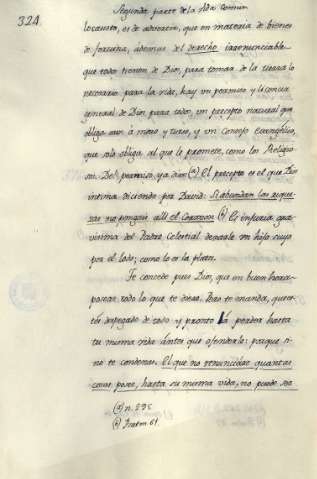 324.
Segunda parte de la Vida Comun
locausto, es de advertir, que en materia de bienes
de fortuna, ademas del derecho irrenunciable
que todos tienen de Dios, para tomar de la tierra lo
necesario para la vida, hay un permiso y licencia
general de Dios para todos, un precepto natural que
obliga aun à moros y turcos, y un Consejo Evangélico,
que solo obliga al que le promete, como los Religio
sos. Del permiso, ya dixe (a) El precepto es el que Dios
intima diciendo por David: Si abundan las rique-
zas no pongais alli el Corazon (b) Es injuria gra-
visima del Padre Celestial dexarle un hijo suyo
por el lodo; como lo es la plata.
Te concede pues Dios, que en buen hora
poseas todo lo que te diese. Pero te manda, que es-
tés despegado de todo y pronto à perder hasta
tu misma vida antes que ofenderle: porque si
no te condenas. El que no renunciáre quantas
cosas posee, hasta su misma vida, no puede ser
(a) n. 295
(b) Psalm. 61.